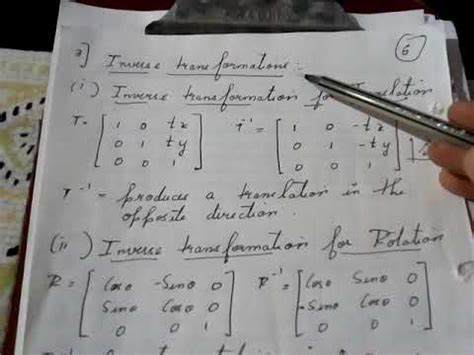 6
3] Inverse transformations :-
(i) Inverse transformation for Translation
T = [ 1 0 tx T⁻¹ = [ 1 0 -tx
0 1 ty 0 1 -ty
0 0 1 ] 0 0 1 ]
T⁻¹ = produces a translation in the
opposite direction.
(ii) Inverse transformation for Rotation
R = [ Cosθ -Sinθ 0 R⁻¹ = [ Cosθ Sinθ 0
Sinθ Cosθ 0 -Sinθ Cosθ 0
0 0 1 ] 0 0 1 ]